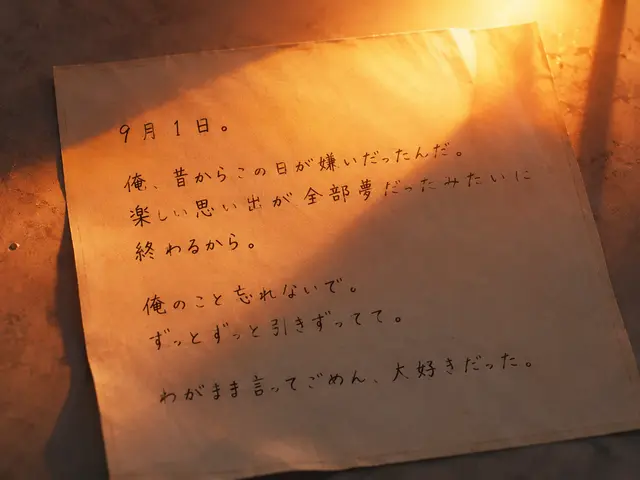 9月1日。
俺、昔からこの日が嫌いだったんだ。
楽しい思い出が全部夢だったみたいに
終わるから。
俺のこと忘れないで。
ずっとずっと引きずってて。
わがまま言ってごめん、大好きだった。